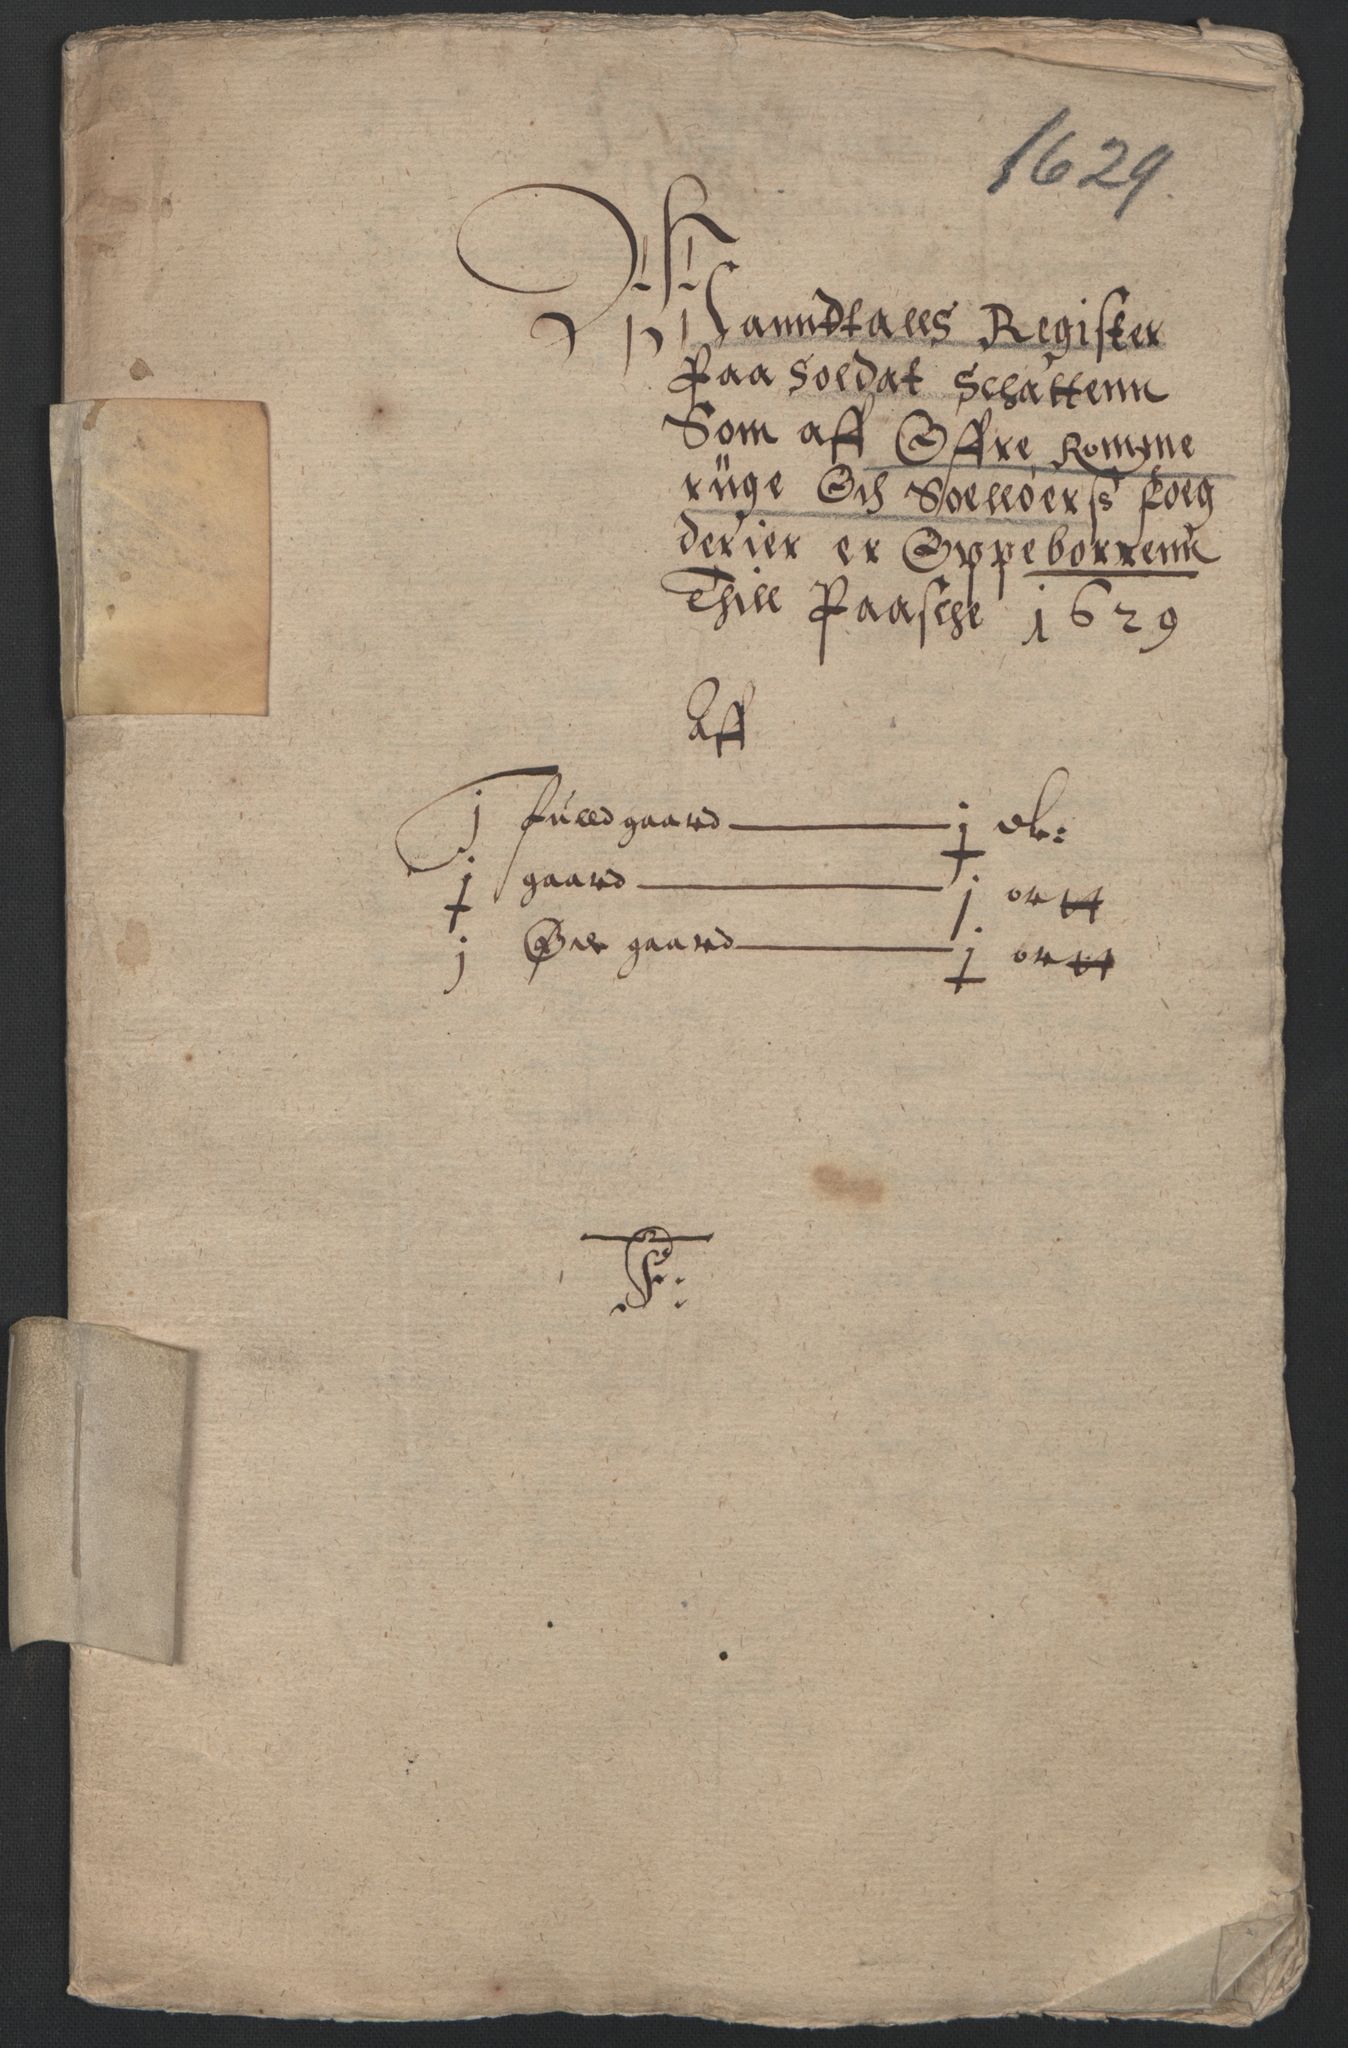 1629
Manndtalls Register
Paa Soldat Schattenn
Som aff Øffre Romme
rüge Och Solløers foeg
derier er Oppeborrenn
Thill Paasche 1629
Aff
j fulld gaard j
j gaard j ort
j Øde gaard j ort
F: